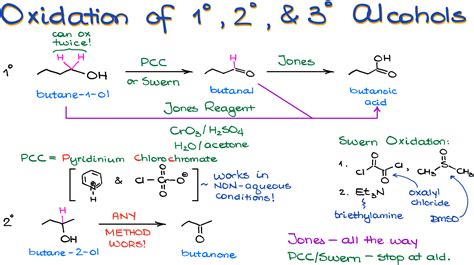 Oxidation of 1°, 2°, & 3° Alcohols
can ox
twice!
H H
1°
OH
butane-1-ol
PCC
or Swern
O
butanal
Jones
OH
O
butanoic
acid
Jones Reagent
CrO3/H2SO4
H2O/acetone
PCC = Pyridinium Chlorochromate
N
H
&
Cl-Cr-O
O
O
~ works in
NON-aqueous
conditions!
Swern Oxidation:
1.
O
Cl
Cl
O
,
O
S
2. Et3N
triethylamine
oxalyl
chloride
DMSO
2°
H
OH
butane-2-ol
ANY
METHOD
WORS!
O
butanone
Jones - all the way
PCC/Swern - stop at ald.